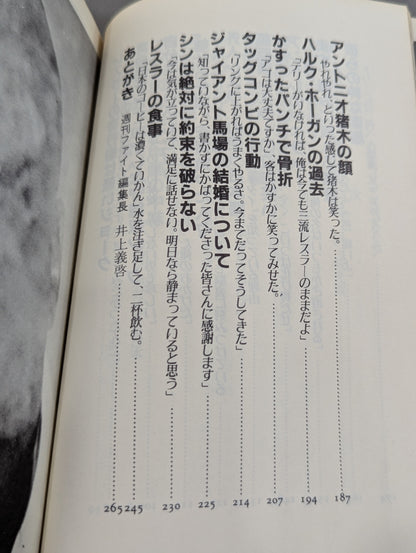 アントニオ猪木の顔
やれやれ、といった感じで猪木は笑った。 187
ハルク・ホーガンの過去
「テリーがいなければ、俺は今でも三流レスラーのままだよ」 194
かすったパンチで骨折
「アゴは大丈夫ですか」客はかすかに笑ってみせた。 207
タッグコンビの行動
「リングに上がればうまくやるさ。今までだってそうしてきた」 214
ジャイアント馬場の結婚について
「知っていながら、書かずにかばってくださった皆さんに感謝します」 225
シンは絶対に約束を破らない
「今は気が立っていて、満足に話せない。明日なら静まっていると思う」 230
レスラーの食事
「日本のコーヒーは濃くていかん」水を注ぎ足して、二杯飲む。 245
あとがき 週刊ファイト編集長 井上義啓 265